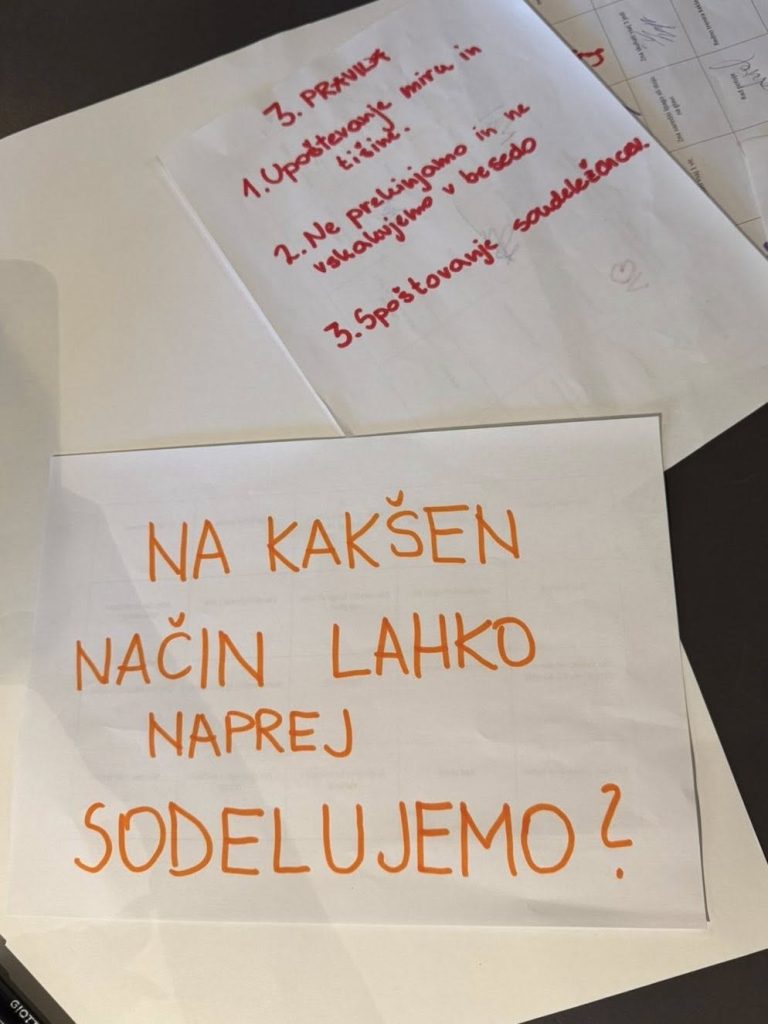 3. PRAVILA
1. Upoštevanje miru in
tišine.
2. Ne prekinjamo in ne
vskakujemo v besedo
3. Spoštovanje soudeležencev
NA KAKŠEN
NAČIN LAHKO
NAPREJ
SODELUJEMO?